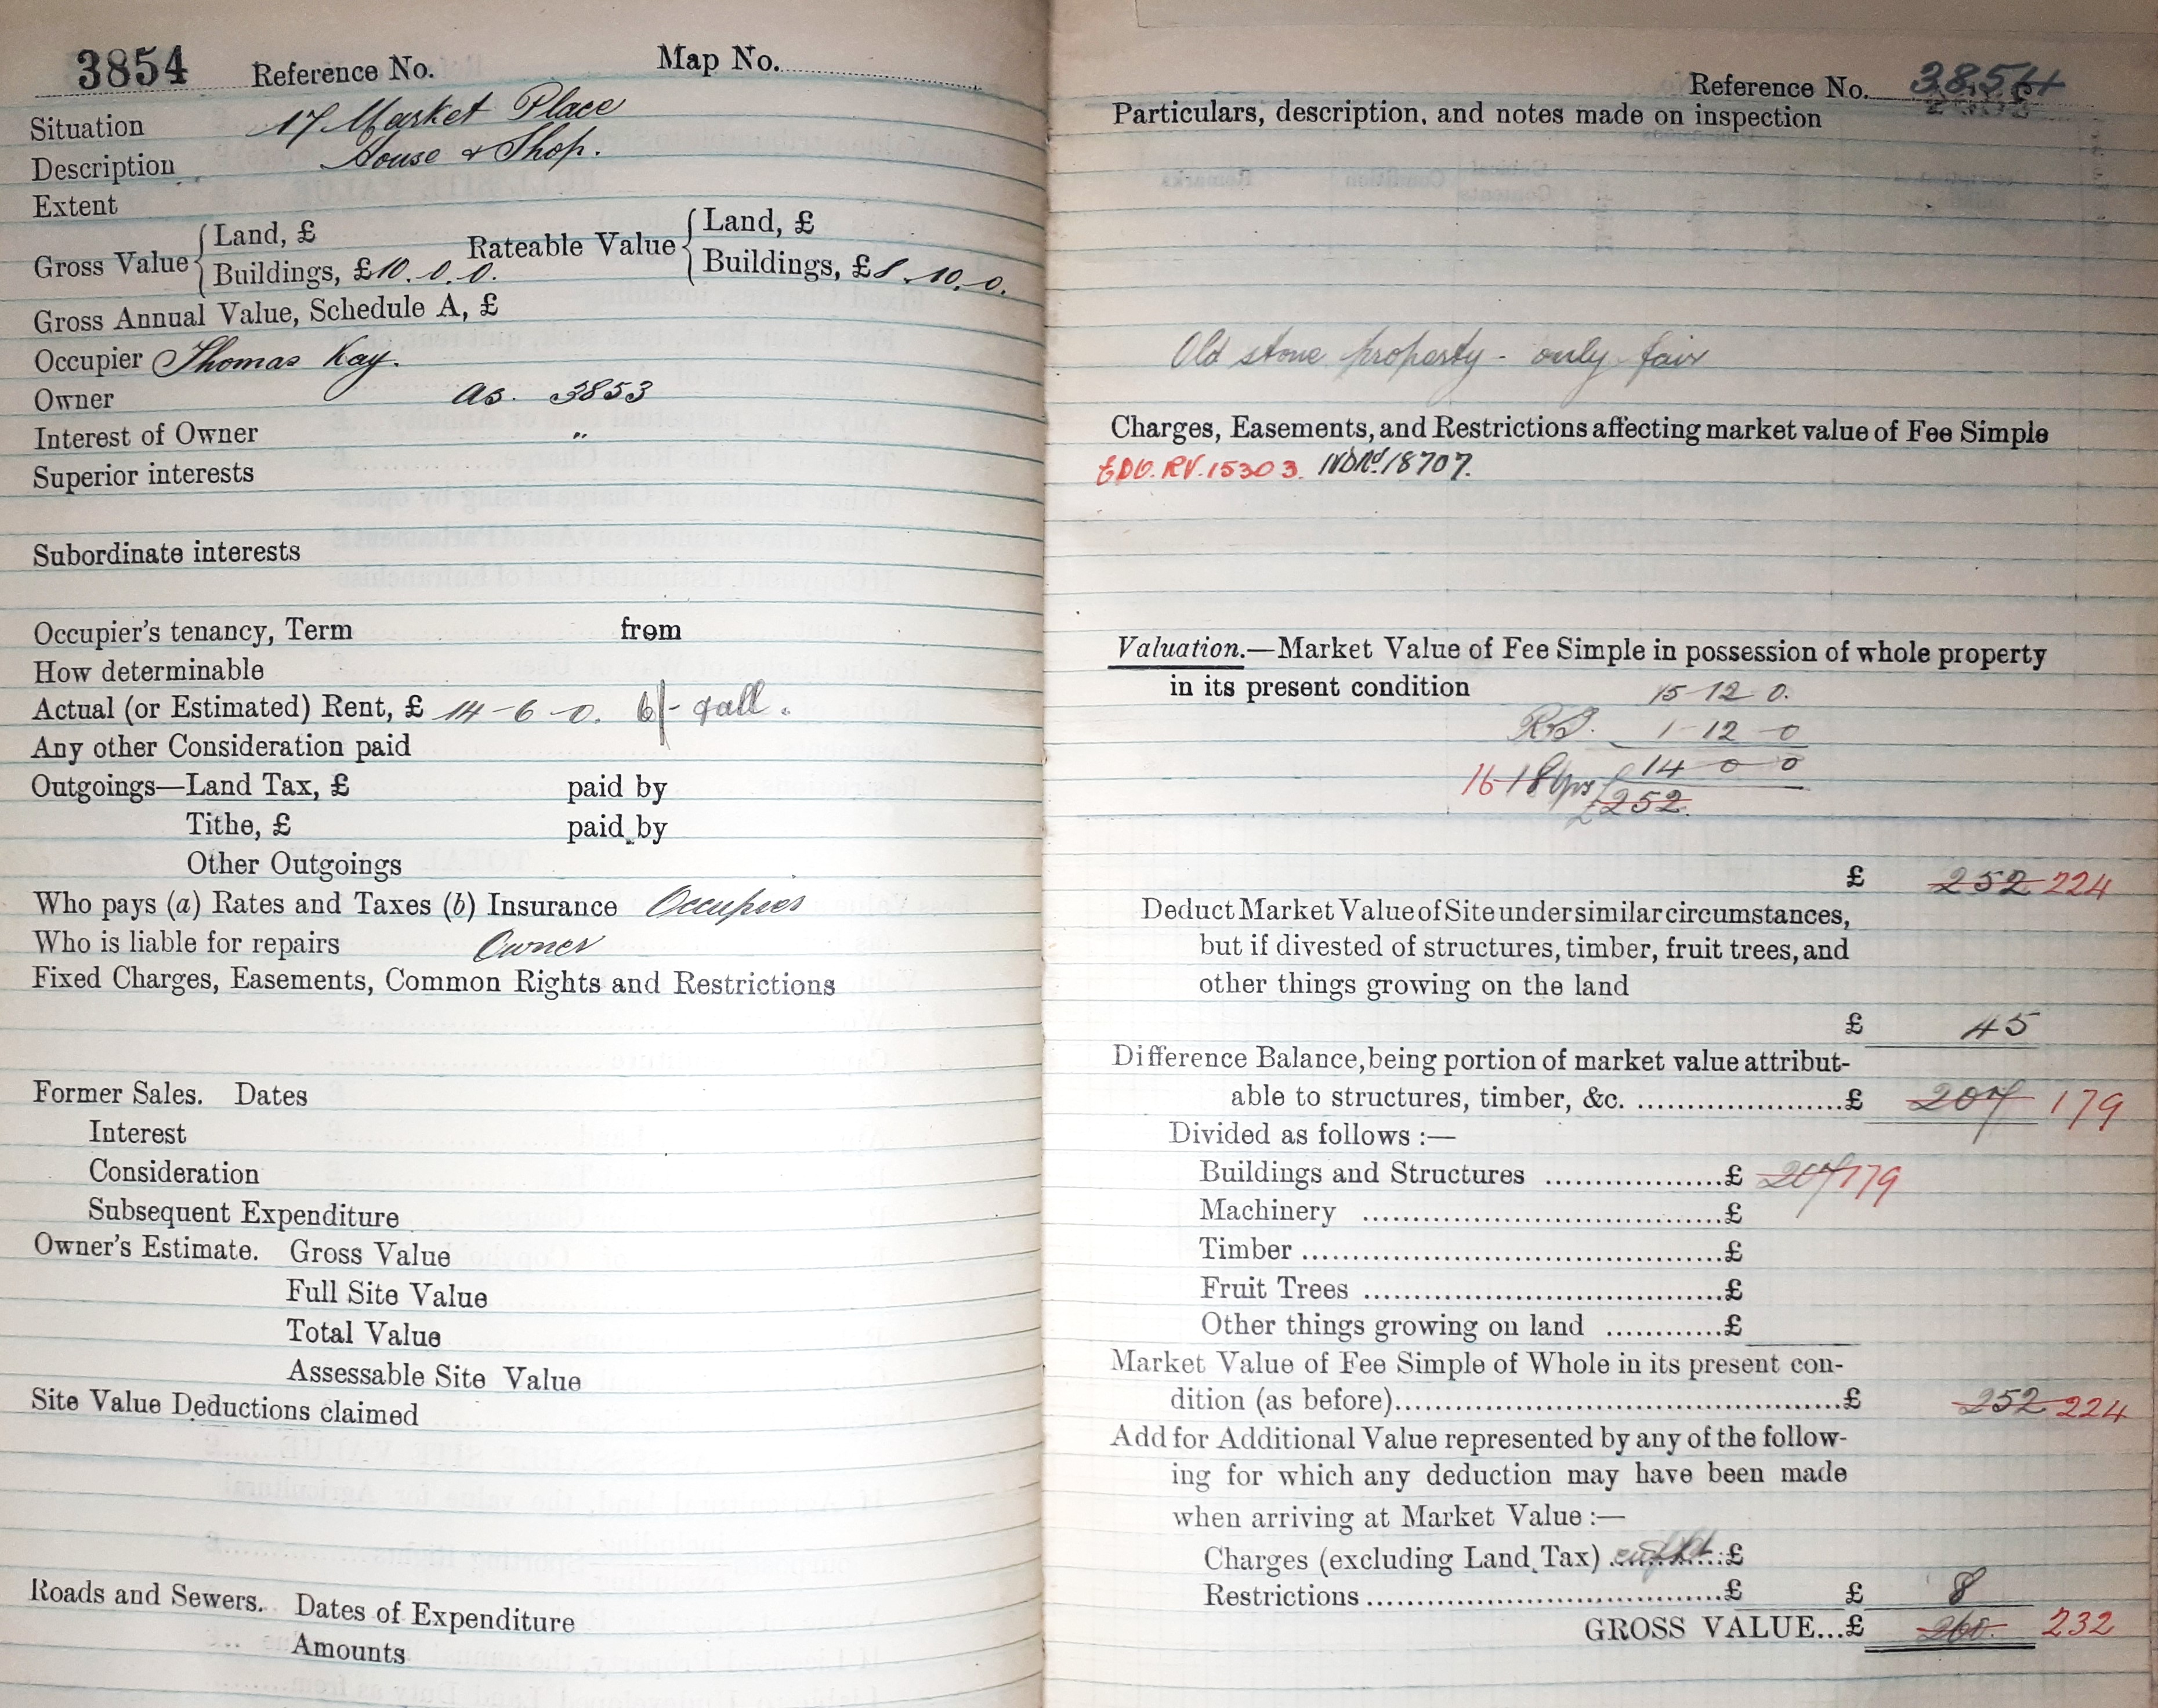 3854 Reference No. Map No.
Situation 17 Market Place
Description House & Shop.
Extent
Gross Value { Land, £
Buildings, £10. 0. 0.
Rateable Value { Land, £
Buildings, £8. 10. 0.
Gross Annual Value, Schedule A, £
Occupier Thomas Kay.
Owner as. 3853
Interest of Owner "
Superior interests
Subordinate interests
Occupier's tenancy, Term from
How determinable
Actual (or Estimated) Rent, £ 14-6-0. 6/-
Any other Consideration paid
Outgoings—Land Tax, £ paid by
Tithe, £ paid by
Other Outgoings
Who pays (a) Rates and Taxes (b) Insurance Occupier
Who is liable for repairs Owner
Fixed Charges, Easements, Common Rights and Restrictions
Former Sales. Dates
Interest
Consideration
Subsequent Expenditure
Owner's Estimate. Gross Value
Full Site Value
Total Value
Assessable Site Value
Site Value Deductions claimed
Roads and Sewers. Dates of Expenditure
Amounts
Reference No. 3854
Particulars, description, and notes made on inspection
Old stone property - only fair
Charges, Easements, and Restrictions affecting market value of Fee Simple
RV. 15303. 18707.
Valuation.—Market Value of Fee Simple in possession of whole property
in its present condition 15 12 0.
1-12-0
16 18 yps 14 0 0
£252.
£ 252 224
Deduct Market Value of Site under similar circumstances,
but if divested of structures, timber, fruit trees, and
other things growing on the land
£ 45
Difference Balance, being portion of market value attribut-
able to structures, timber, &c. £ 207 179
Divided as follows :—
Buildings and Structures £ 207 179
Machinery £
Timber £
Fruit Trees £
Other things growing on land £
Market Value of Fee Simple of Whole in its present con-
dition (as before) £ 252 224
Add for Additional Value represented by any of the follow-
ing for which any deduction may have been made
when arriving at Market Value :—
Charges (excluding Land Tax) £
Restrictions £ £ 8
GROSS VALUE...£ 260. 232